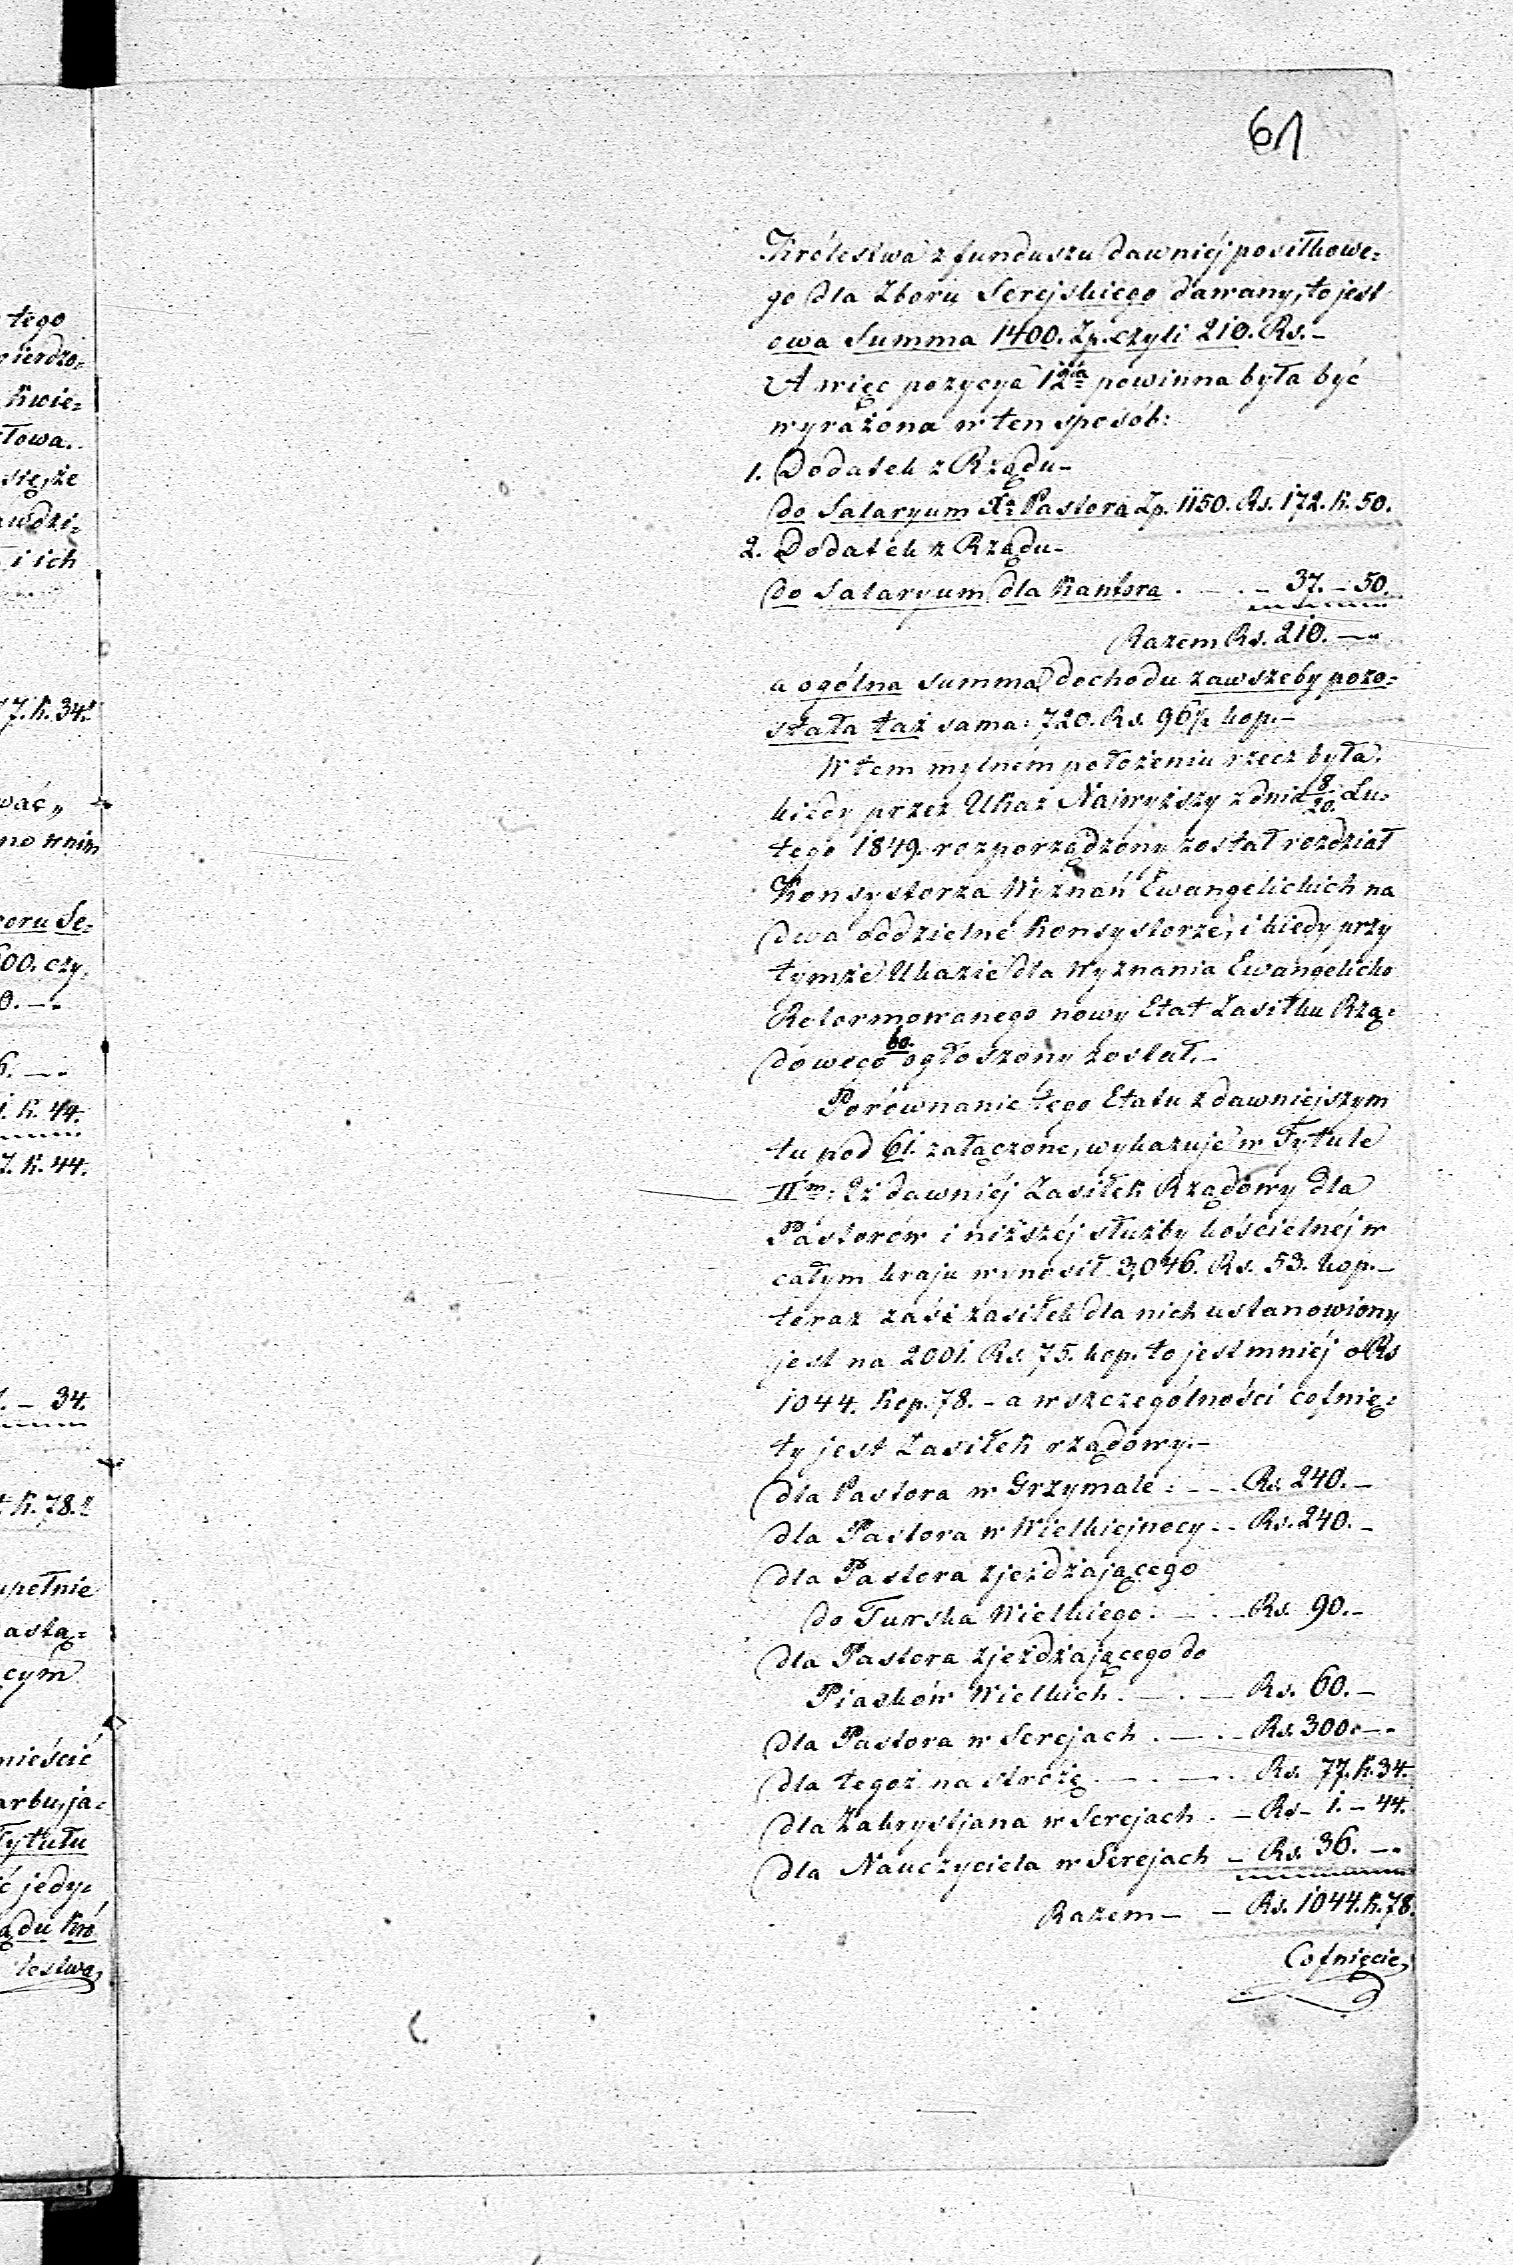 61
Królestwa z funduszu dawniéj posiłkowe=
go dla Zboru Serejskiego dawany, to jest
owa Summa 1400. Zp. czyli 210. Rs.-
A więc pozycya 12ta powinna była być
wyrażona w ten sposób:
1. Dodatek z Rządu-
do Salaryum Xa Pastora Zp. 1150. Rs. 172. k. 50.
2. Dodatek z Rządu-
do Salaryum dla Kantora . - . - 37. - 50.
Razem Rs. 210. -"
a ogólna summa dochodu zawszeby pozo=
stała taż sama: 720. Rs. 96½ kop.-
W tem mylném położeniu rzecz była,
kiedy przez Ukaz Najwyższy z dnia 8/20. Lu=
tego 1849. rozporządzony został rozdział
Konsystorza Wyznań Ewangelickich na
dwa oddzielne Konsystorze, i kiedy przy
tymże Ukazie dla Wyznania Ewangelicko
Reformowanego nowy Etat Zasiłku Rzą=
dowego 60. ogłoszony został.-
Porównanie tego Etatu z dawniejszym
tu pod 61. załączone, wykazuje w Tytule
IIm: Iż dawniéj Zasiłek Rządowy dla
Pastorów i niższéj służby kościelnéj w
całym kraju wynosił 3,046. Rs. 53. kop.-
teraz zaś zasiłek dla nich ustanowiony
jest na 2001. Rs. 75. kop. to jest mniéj o Rs
1044. Kop. 78. - a w szczególności cofnię=
ty jest Zasiłek rządowy.-
dla Pastora w Grzymale . - - . Rs. 240. -
dla Pastora w Wielkiejnocy - - Rs. 240. -
dla Pastora zjeżdżającego
do Turska Wielkiego . - . - Rs. 90. -
dla Pastora zjeżdżającego do
Piasków Wielkich . - . - Rs. 60. -
dla Pastora w Serejach . - . - Rs. 300. - -
dla tegoż na stróżę . - . - . Rs. 77. k. 34.
dla Zakrystjana w Serejach . - Rs - 1. - 44.
dla Nauczyciela w Serejach - Rs. 36. - -
Razem - - Rs. 1044. k. 78.
Cofnięcie